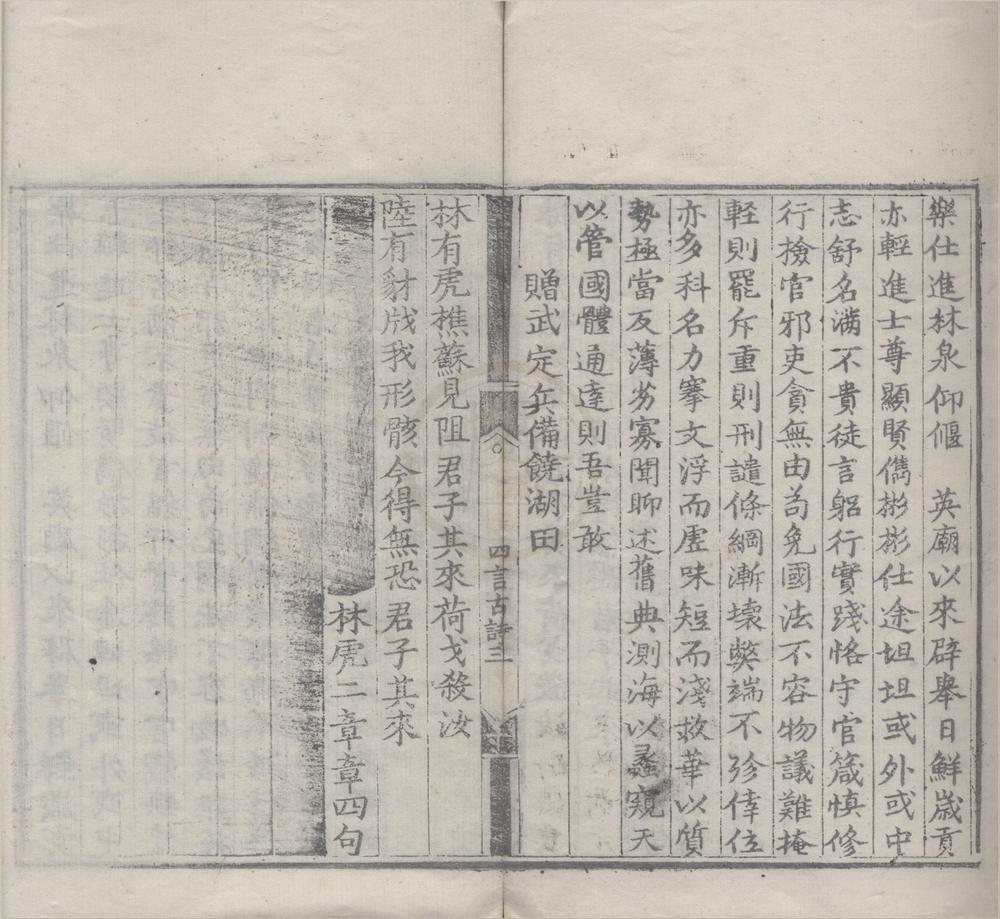 樂仕進林泉仰偃　英廟以來辟舉日鮮歳貢
亦輕進士尊顯賢儁彬彬仕途坦坦或外或中
志舒名滿不貴徒言躬行實踐恪守官箴慎修
行撿官邪吏貪無由苟免國法不容物議難掩
軽則罷斥重則刑譴條綱漸壊弊端不殄倖位
亦多科名力搴文浮而虚味短而淺救華以質
勢極當反薄劣寡聞聊述舊典測海以蠡窺天
以管國體通達則吾豈敢
贈武定兵備饒湖田
四言古詩三
林有虎樵蘇見阻君子其來荷戈殺汝
陸有豺戕我形骸今得無恐君子其來
林虎二章章四句